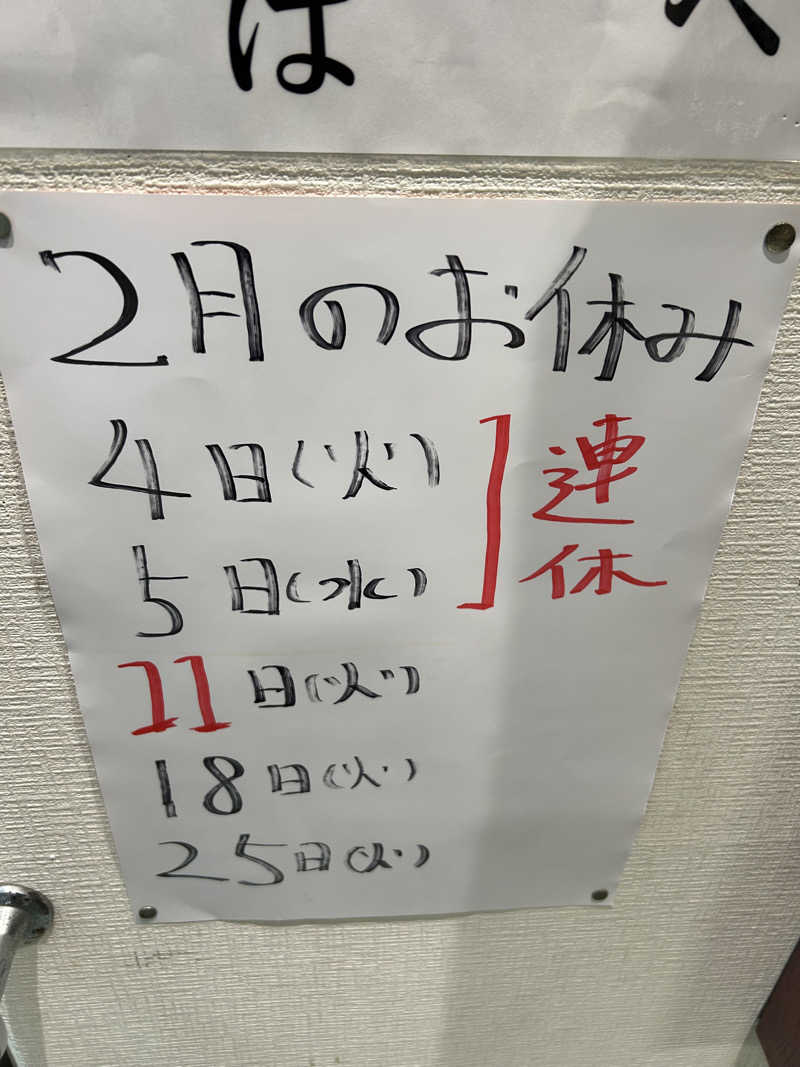 は
2月のお休み
4日(火)
5日(水)
連休
11日(火)
18日(火)
25日(火)